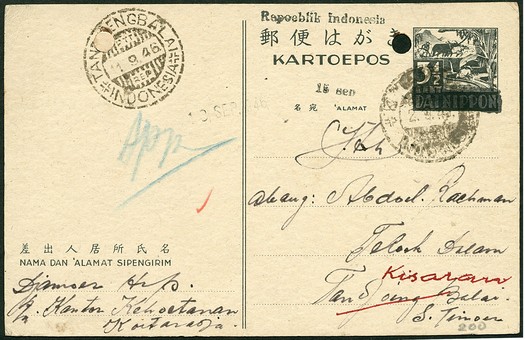 Repoeblik Indonesia
郵便はがき
KARTOEPOS
3½
DAI NIPPON
TANDJOENGBALAI
1.9.46
INDONESIA
15 sep
名宛 'ALAMAT
10 SEP. 46
App
Abang: Abdoel Rachman
Teloek Dalam
Kisaran
Tandjoeng Balai
S. Timoer
200
差出人居所氏名
NAMA DAN 'ALAMAT SIPENGIRIM
Djamoer
Kantor Kehoetanan
Koetaradja.